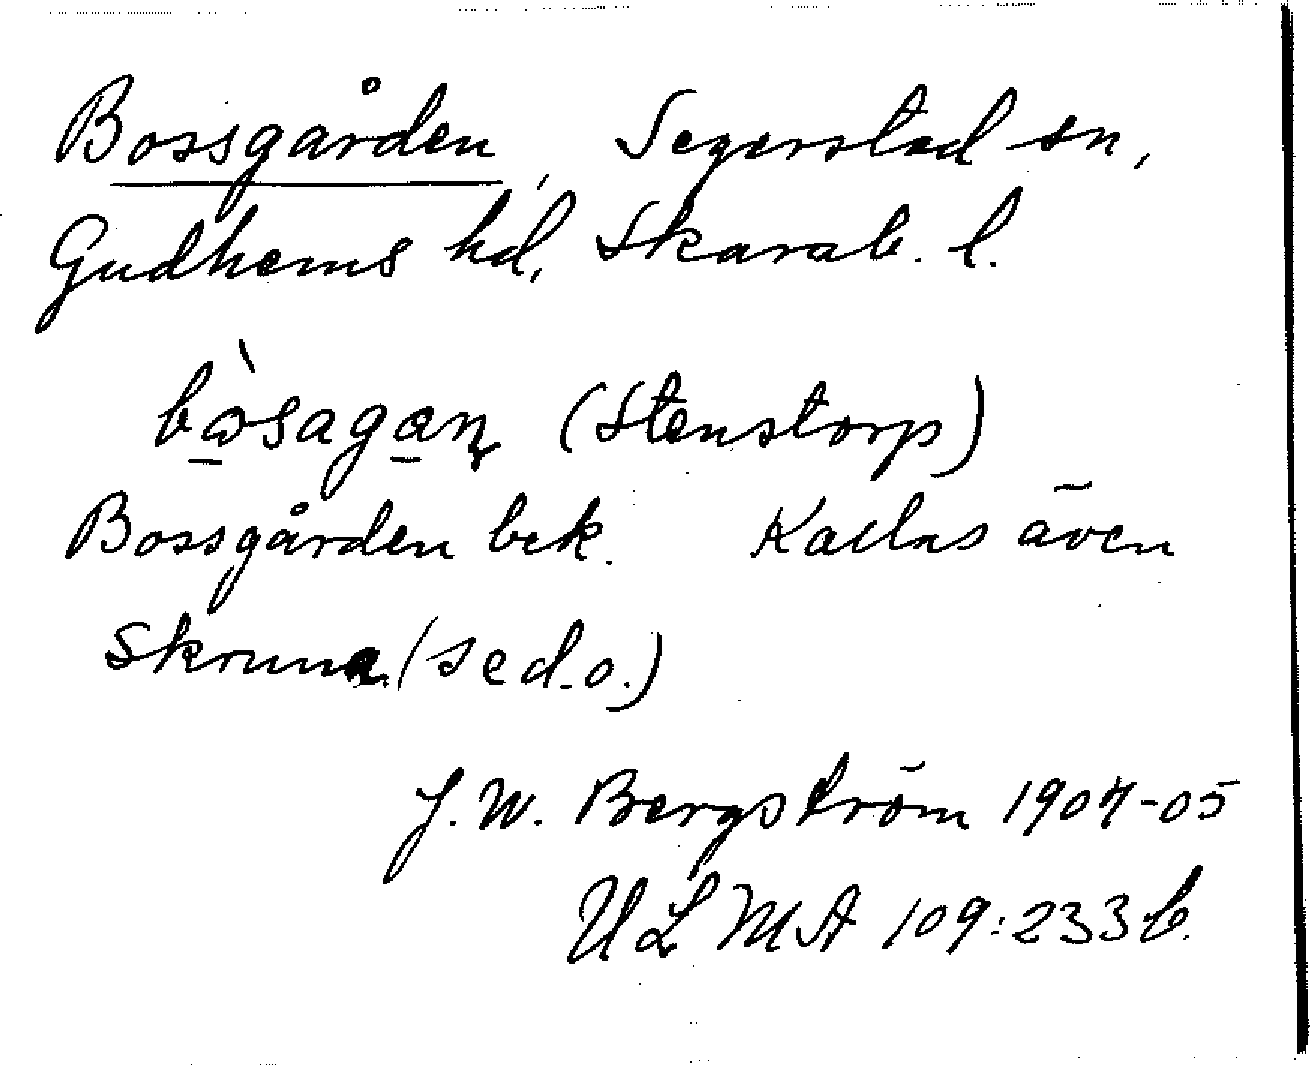 Bossgården, Segerstad sn,
Gudhems hd, Skarab. l.
bɷ̀sagan (Stenstorp)
Bossgården bek. Kallas även
Skruna (se d.o.)
J. W. Bergström 1904-05
ULMA 109:233 b.